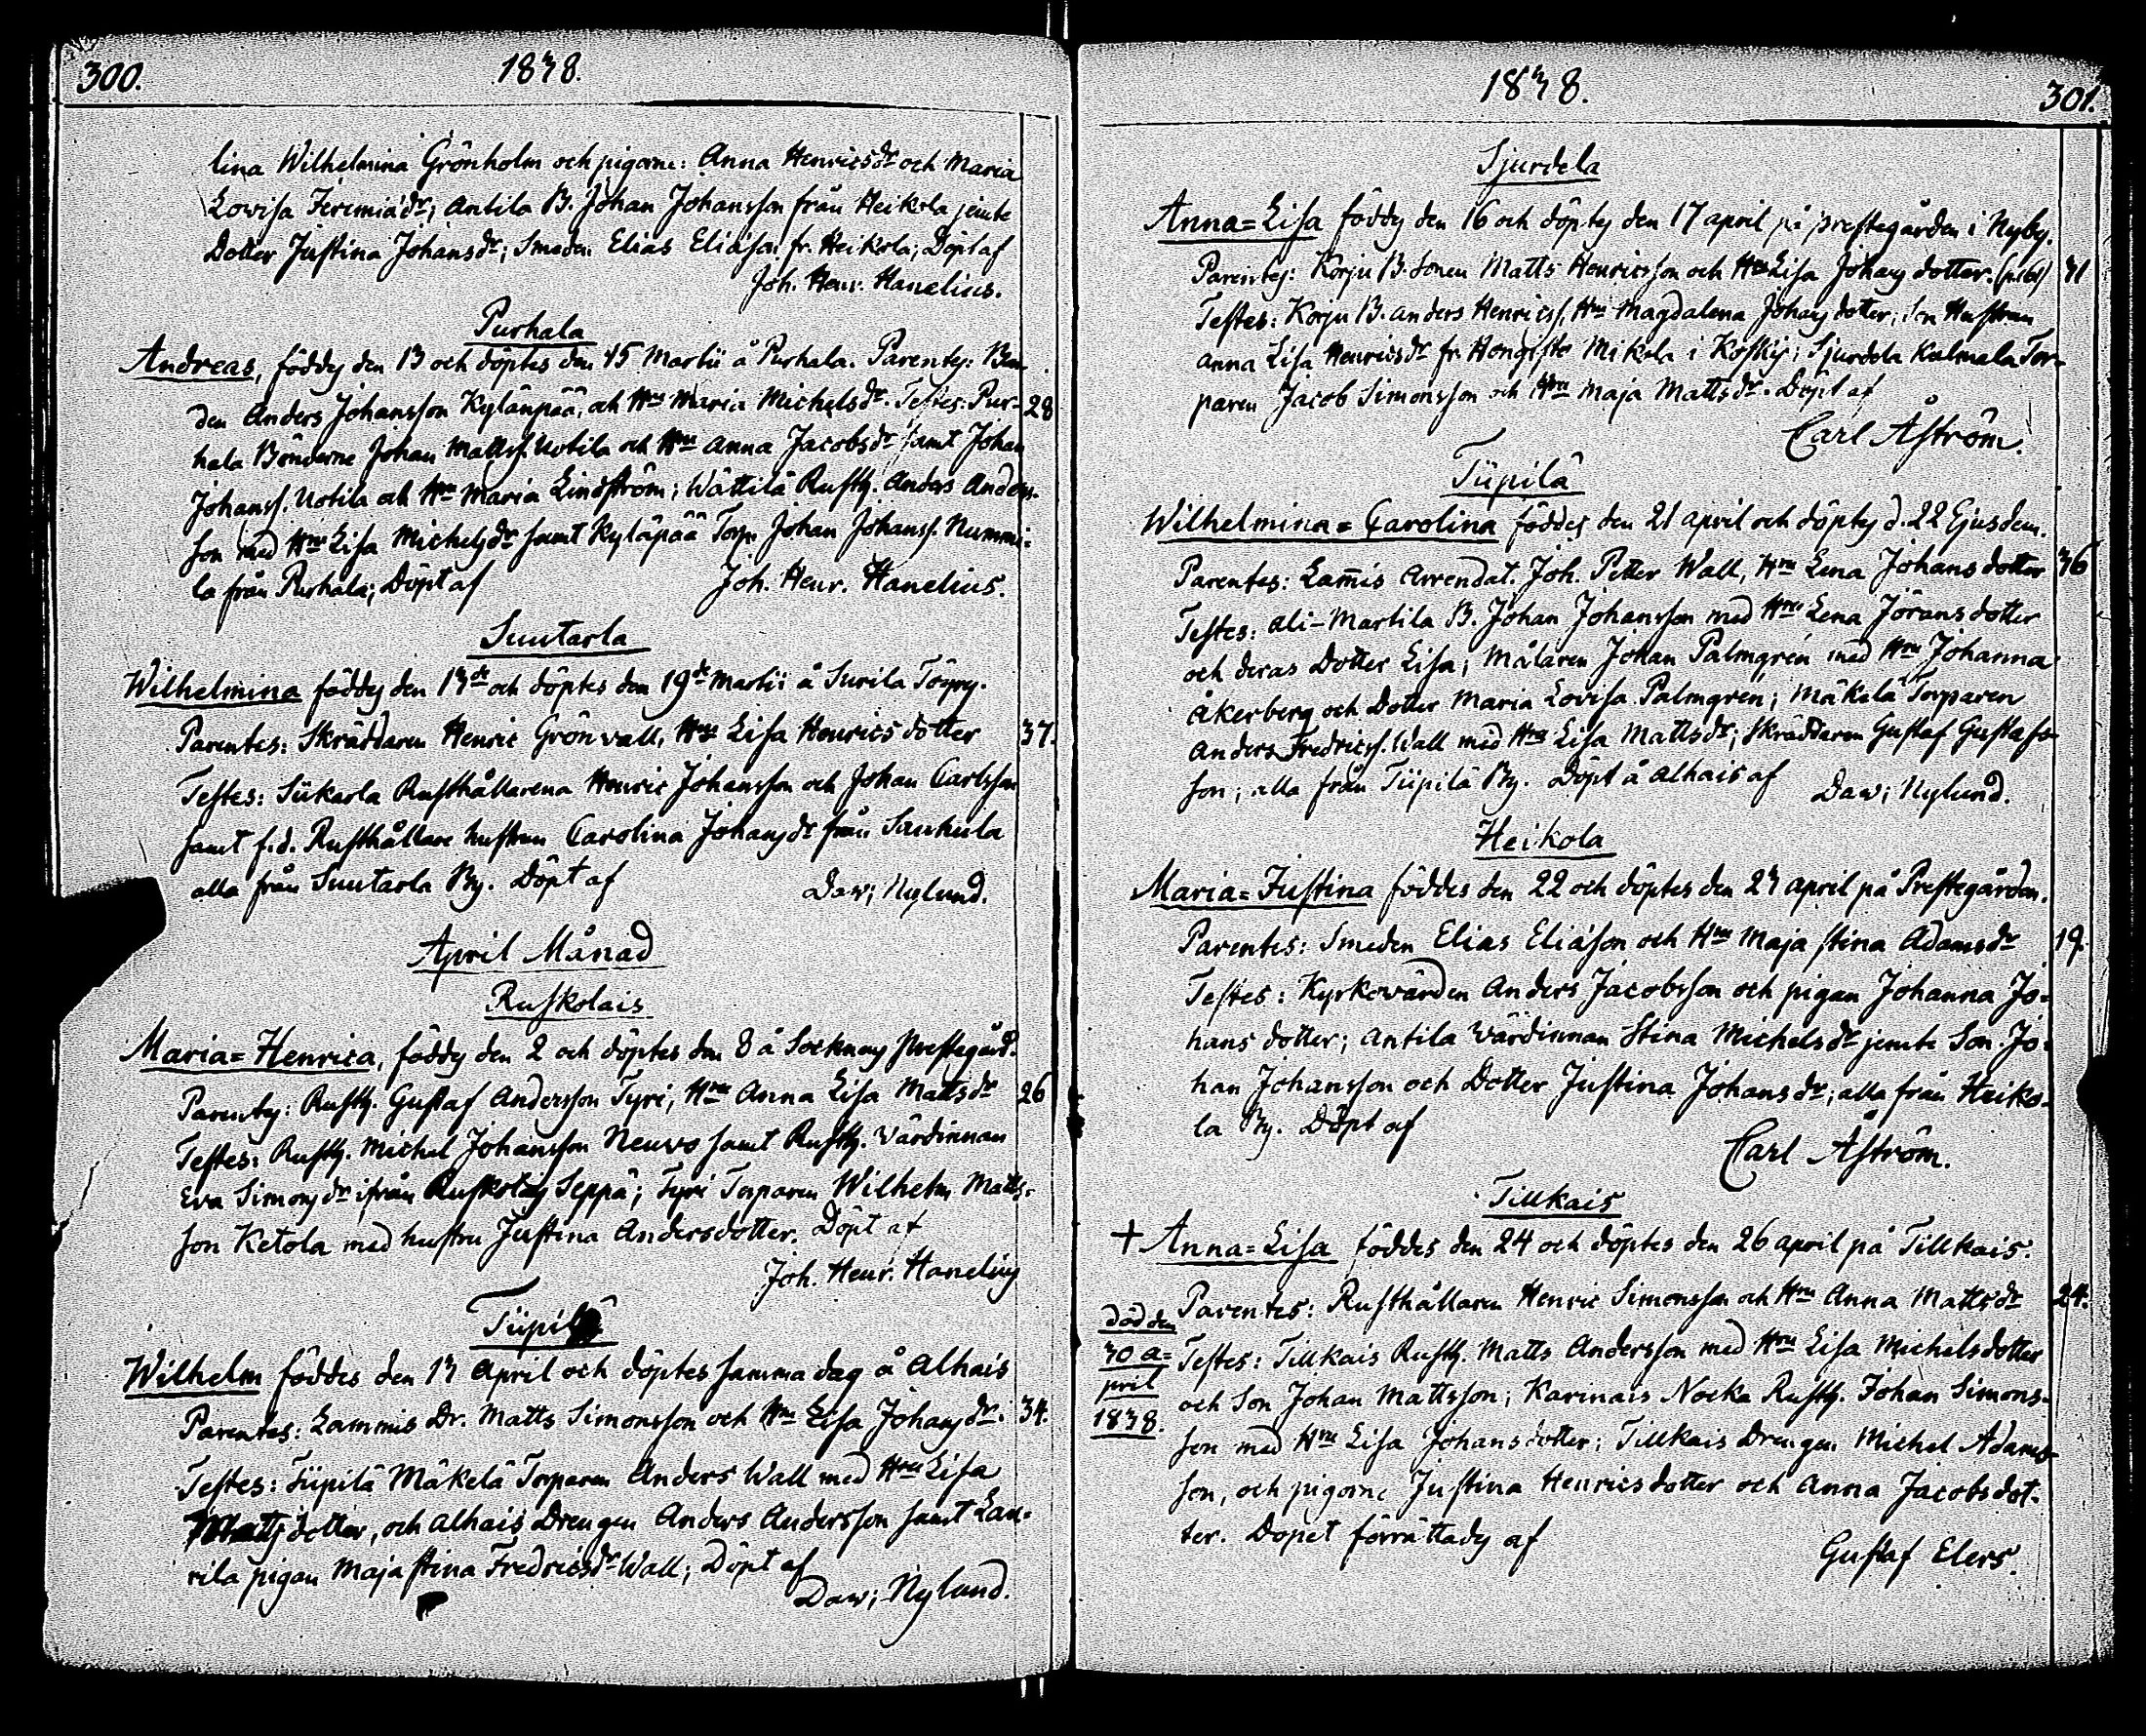 300.
1838.
lina Wilhelmina Grönholm och pigorne: Anna Henricsdr och Maria
Lovisa Jeremiædr; Antila B. Johan Johansson från Heikola jemte
Dotter Justina Johansdr; Smeden Elias Eliasson fr. Heikola; Döpt af
Joh. Henr. Hanelius.
Purhala
Andreas, föddes den 13 och döptes den 15 Martii å Purhala. Parentes: Bon-
den Anders Johansson Kylänpää, och Hru Maria Michelsdr. Testes: Pur- 28
hala Bönderne Johan Mattss. Uotila och Hru Anna Jacobsdr samt Johan
Johanss. Uotila och Hru Maria Lindström; Wättilä Rusth. Anders Anders-
son med Hru Lisa Michelsdr samt Kyläpää Torp. Johan Johanss. Nummi-
la från Purhala; Döpt af Joh. Henr. Hanelius.
Suutarla
Wilhelmina föddes den 13de och döptes den 19de Martii å Surila Töyry.
Parentes: Skräddaren Henric Grönvall, Hru Lisa Henrics dotter 37.
Testes: Siikarla Rusthållarena Henric Johansson och Johan Carlsson
samt f.d. Rusthållare hustrun Carolina Johansdr från Sauhula
alla från Suutarla By. Döpt af Daw: Nylund.
April Månad
Ruskolais
Maria=Henrica, föddes den 2 och döptes den 8 å Socknens Prestegård.
Parentes: Rusth. Gustaf Andersson Tyri, Hru Anna Lisa Mattsdr 26
Testes: Rusth. Michel Johansson Neuvo samt Rusth. Värdinnan
Eva Simonsdr ifrån Ruskolais Seppä; Tyri Torparen Wilhelm Matts-
son Ketola med hustru Justina Andersdotter. Döpt af
Joh. Henr. Hanelius
Tiipilä
Wilhelm föddes den 13 April och döptes samma dag å Alhais
Parentes: Lammis Dr. Matts Simonsson och Hru Lisa Johansdr. 34.
Testes: Tiipilä Mäkelä Torparen Anders Wall med Hru Lisa
Mattsdotter, och Alhais Drengen Anders Andersson samt Lau-
rila pigan Maja Stina Fredricsdr Wall; Döpt af
Daw: Nylund.
1838.
301.
Sjurdela
Anna=Lisa föddes den 16 och döptes den 17 april på prestegården i Nyby.
Parentes: Korju B. Sonen Matts Henricsson och Hru Lisa Johans dotter. 31
Testes: Korju B. Anders Henricss. Hru Magdalena Johans dotter; Son Hustrun
Anna Lisa Henricsdr fr. Hongisto Mikola i Koskis; Sjurdela Kulmala Tor-
paren Jacob Simonsson och Hru Maja Mattsdr. Döpt af
Carl Åström.
Tiipilä
Wilhelmina=Carolina föddes den 21 April och döptes d. 22 Ejusdem.
Parentes: Lam̄is Arrendat. Joh. Petter Wall, Hru Lena Johans dotter 36
Testes: Ali-Martila B. Johan Johansson med Hru Lena Jörans dotter
och deras Dotter Lisa; Målaren Johan Palmgrén med Hru Johanna
Åkerberg och Dotter Maria Lovisa Palmgren; Mäkelä Torparen
Anders Fredricss. Wall med Hru Lisa Mattsdr; Skräddaren Gustaf Gustafs-
son; alla från Tiipilä By. Döpt å Alhais af Daw: Nylund.
Heikola
Maria=Justina föddes den 22 och döptes den 23 april på Prestegården.
Parentes: Smeden Elias Eliasson och Hru Maja Stina Adamsdr 19.
Testes: Kyrkovärden Anders Jacobsson och pigan Johanna Jo-
hans dotter; Antila Värdinnan Stina Michelsdr jemte Son Jo-
han Johansson och Dotter Justina Johansdr; alla från Heiko-
la By. Döpt af
Carl Åström.
Tillkais
+ Anna=Lisa föddes den 24 och döptes den 26 april på Tillkais.
Parentes: Rusthållaren Henric Simonsson och Hru Anna Mattsdr 24.
död den
30 a-
pril
1838.
Testes: Tillkais Rusth. Matts Andersson med Hru Lisa Michelsdotter
och Son Johan Mattsson; Karinais Nocka Rusth. Johan Simons-
son med Hru Lisa Johans dotter; Tillkais Drengen Michel Adams-
son, och pigorne Justina Henricsdotter och Anna Jacobsdot-
ter. Dopet förrättades af
Gustaf Elers.